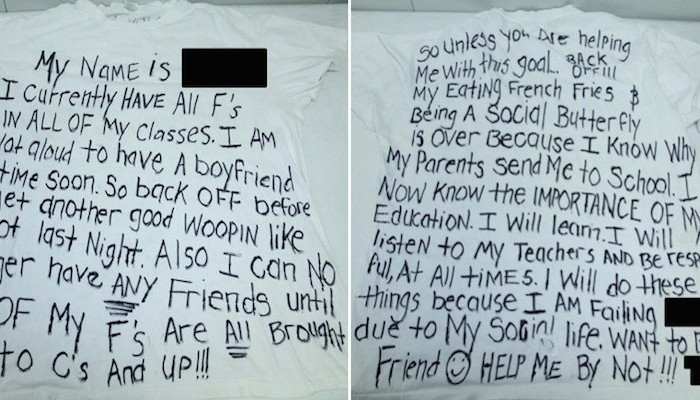 My NAME is
I Currently HAVE All F's
IN ALL OF My Classes. I AM
Not aloud to have A boyfriend
time Soon. So back OFF before
get another good WOOPIN like
last Night. Also I Can NO
have ANY Friends until
OF My F's Are All Brought
to C's And UP!!!
So Unless you Are helping
Me With this goal... BACK OFF!!!
My Eating French Fries &
Being A Social Butterfly
is Over Because I Know Why
My Parents Send Me to School. I
NOW Know the IMPORTANCE OF My
Education. I Will learn. I Will
listen to My Teachers AND Be resp
ful, At All tiMES. I Will do these
things because I AM Failing
due to My Social life. WANT to
Friend ☺ HELP ME By Not!!!